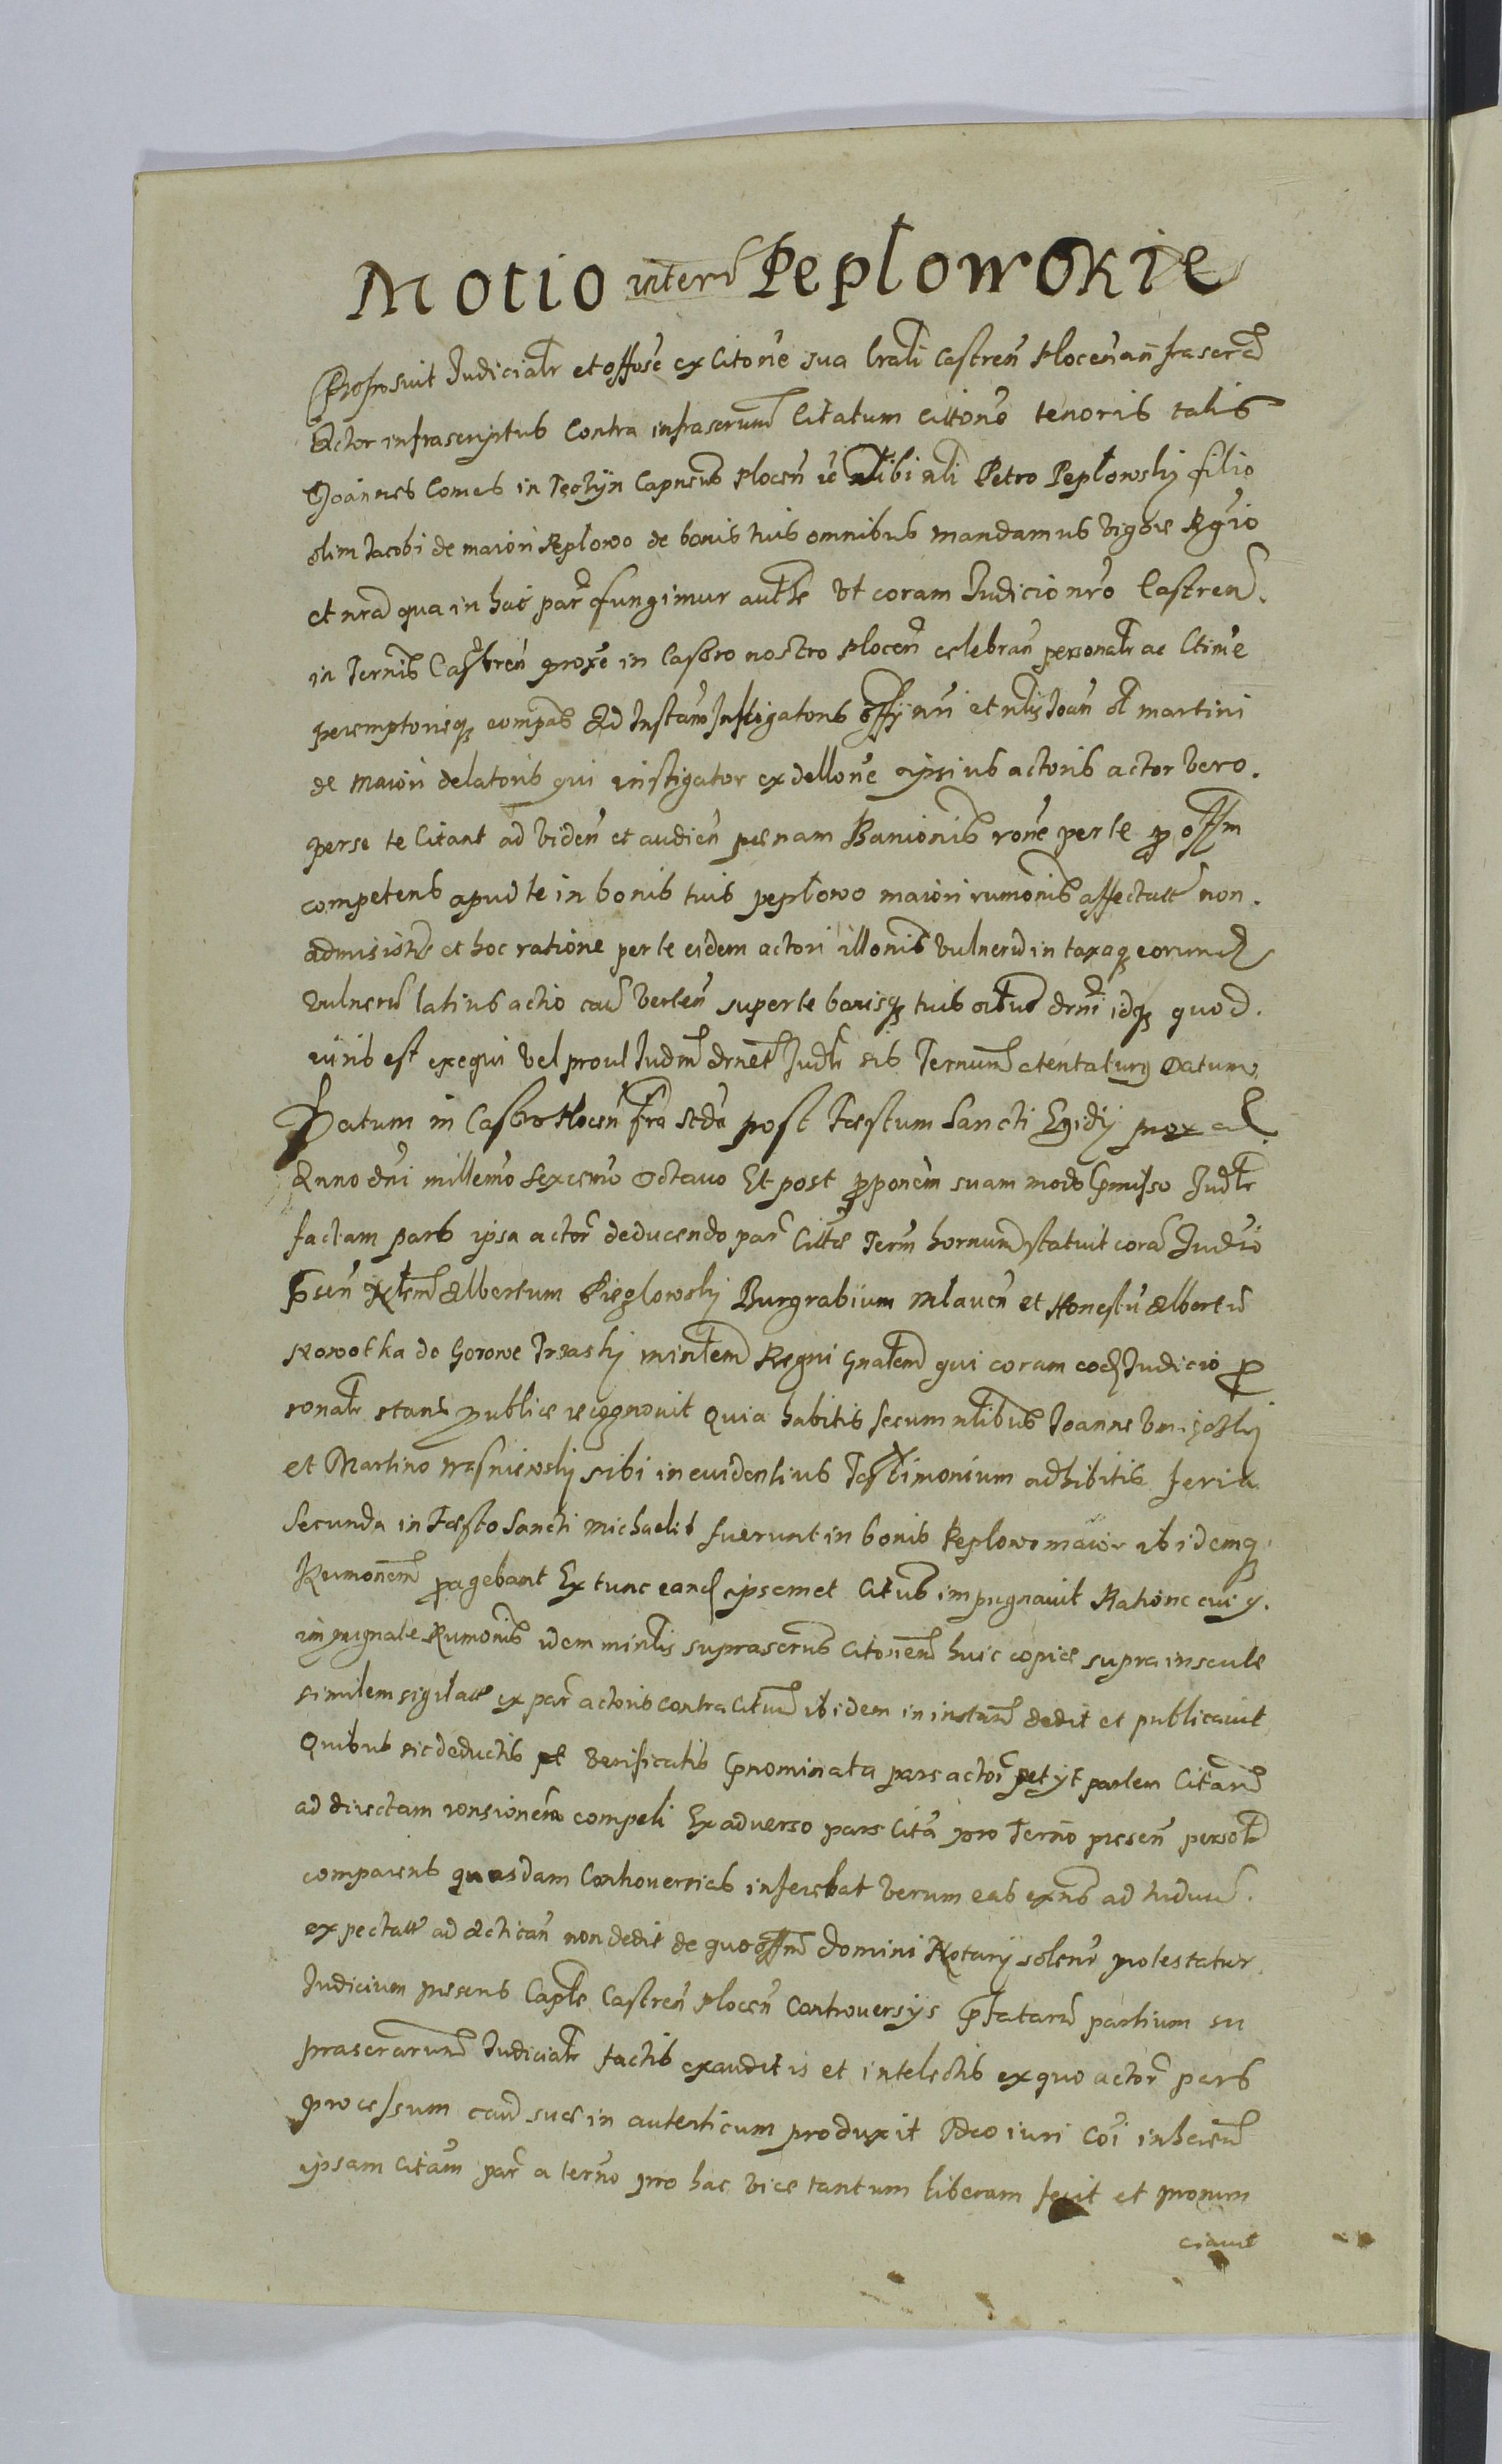 Motio inter Peplowskie
Proposuit Judicialr et offose ex Citone sua lrali Castren Plocen infrascra
Actor infrascriptus Contra infrascrum Citatum Cittone tenoris talis
Joannes Comes in Teczyn Capneus Plocen tibi nli Petro Peplowsky filio
olim Jacobi de maiori Peplowo de bonis tuis omnibus mandamus vigore Rgio
et nra qua in hac par fungimur authe Vt coram Judicio nro Castren.
in Ternis Castren proxe in Castro nostro Plocen celebran personalr ac Ctime
peremptorieq compas Ad Instam Instigatoris offy nri et nlis Joan ol martini
de maiori delatoris qui instigator ex dellone ipsius actoris actor vero.
perse te Citant ad viden et audien penam Banionis rone per te p offm
competens apud te in bonis tuis peplowo maiori rumonis affectate non.
admisisti et hoc ratione per te eidem actori illonis vulneru in taxaq eorund
vulneru latius actio cau verten super te bonisq tuis drni idq quod.
iuris est exequi vel prout Judm drnet Judr sis Ternum attentaturq Datum
Datum in Castro Plocen fra scda post Festum Sancti Egidy prox
Anno dni millemo Sexcemo Octauo Et post pponem suam modo pmisso Judlr
factam pars ipsa actor deducendo par Citte Term hornum statuit cora Judio
psen Albertum Pieglowsky Burgrabium Mlauen et Honestu Albertu
Nowotka de Gorowe Trzasky minlem Regni Gnalem qui coram eod Judicio p
sonalr stans publice recognouit Quia habitis secum nlibus Joanne
et Martino Wasniewsky sibi in euidentius Testimonium adhibitis feria
Secunda in Festo Sancti Michaelis fuerunt in bonis Peplowo maior ibidemq
Rumonem pagebant Ex tunc eand ipsemet Citus impugnauit Ratione cuiq.
impugnate Rumonis idem minlis suprascrus Citonem huic copie supra inscule
similem sigilatt ex par actoris contra Citum ibidem in instan dedit et publicauit
Quibus sic deductis et verificatis pnominata pars actor petyt partem Citam
ad directam ronsionem compeli Ex aduerso pars Cita pro Terno presen persolr
comparens quasdam Controuersias inferebat verum eas exns ad
expectatt ad Actican non dedit de quo offm domini Notary solem protestatur
Judicium presens Caple Castren Plocen Controuersys pfataru partium su
prascrarum Judicialr factis exauditis et intelectis ex quo actor pars
processum cau sue in autenticum produxit Ideo iuri Coi inheren
ipsam Citam par a terno pro hac vice tantum liberam fecit et pronun
ciauit